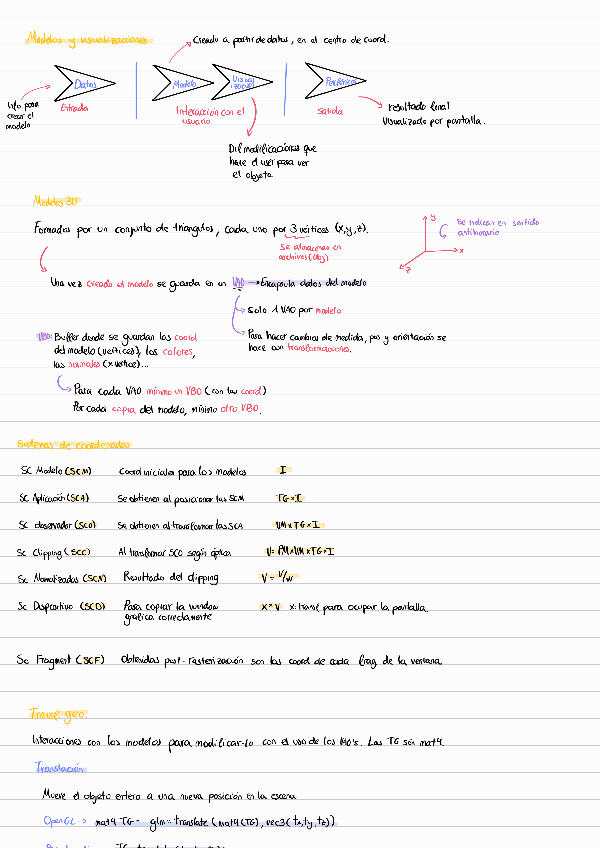 Modelos y visualizaciones
Creado a partir de datos, en el centro de coord.
Datos
Modelo
Periféricos
Info para
crear el
modelo
Entrada
Interacción con el
usuario
Salida
resultado final
visualizado por pantalla.
Dif modificaciones que
hace el user para ver
el objeto
Modelos 3D
Formados por un conjunto de triangulos, cada uno por 3 vértices (x,y,z).
Se almacenan en
archivos (Obj)
y
x
z
Se indican en sentido
antihorario
Una vez creado el modelo se guarda en un VAO → Encapsula datos del modelo
Solo 1 VAO por modelo
Para hacer cambios de medida, pos y orientación se
hace con transformaciones.
VBO: Buffer donde se guardan las coord
del modelo (vertices), los colores,
las normales (x vertice)...
Para cada VAO mínimo un VBO (con las coord)
Por cada copia del modelo, mínimo otro VBO.
Sistemas de coordenadas
SC Modelo (SCM) Coord iniciales para los modelos I
SC Aplicación (SCA) Se obtienen al posicionar las SCM TG×I
SC observador (SCO) Se obtienen al transformar las SCA VM×TG×I
SC Clipping (SCC) Al transformar SCO según óptica V=PM×VM×TG×I
SC Normalizadas (SCN) Resultado del clipping V=V/w
SC Dispositivo (SCD) Para copiar la window
grafica correctamente
x: transf para ocupar la pantalla.
SC Fragment (SCF) Obtenidas post-rasterización son las coord de cada frag de la ventana
Transf. geo.
Interacciones con los modelos para modificar-lo con el uso de los VAO's. Las TG són mat4.
Translación
Mueve el objeto entero a una nueva posición en la escena
OpenGL → mat4 TG = glm::translate(mat4(TG), vec3(tx,ty,tz))